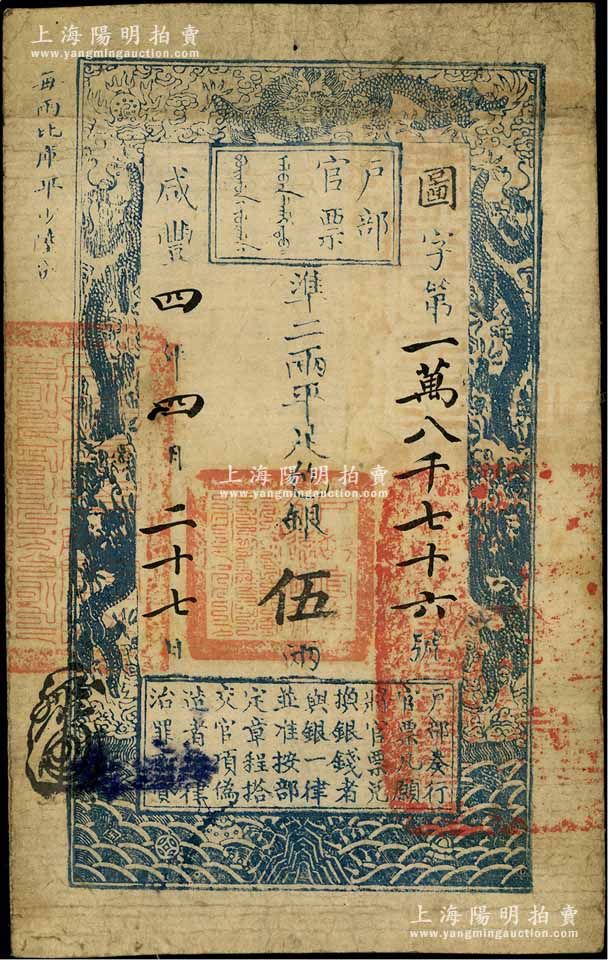 上海陽明拍賣
www.yangmingauction.com
戶部
官票
圖字第一萬八千七十六號
準二兩平足色銀伍兩
咸豐四年四月二十七日
每兩比庫平少陸分
戶部奏行
官票凡願
將官票兌
換銀錢者
與銀一律
並准按部
定章程搭
交官項偽
造者依律
治罪不貸
上海陽明拍賣
www.yangmingauction.com
上海陽明拍賣
www.yangmingauction.com